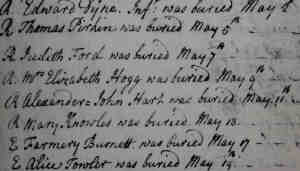 R. Edward Tyne. Inf: was buried May
R Thomas Pirkin was buried May 5th
R Judith Ford was buried May 7th
R. Mrs Elizabeth Hogg was buried May 9th
R Alexander John Hart was buried May 11th
R Mary Knowles was buried May 13.
E Farmery Burnett was buried May 17
E Alice Fowler was buried May 19.